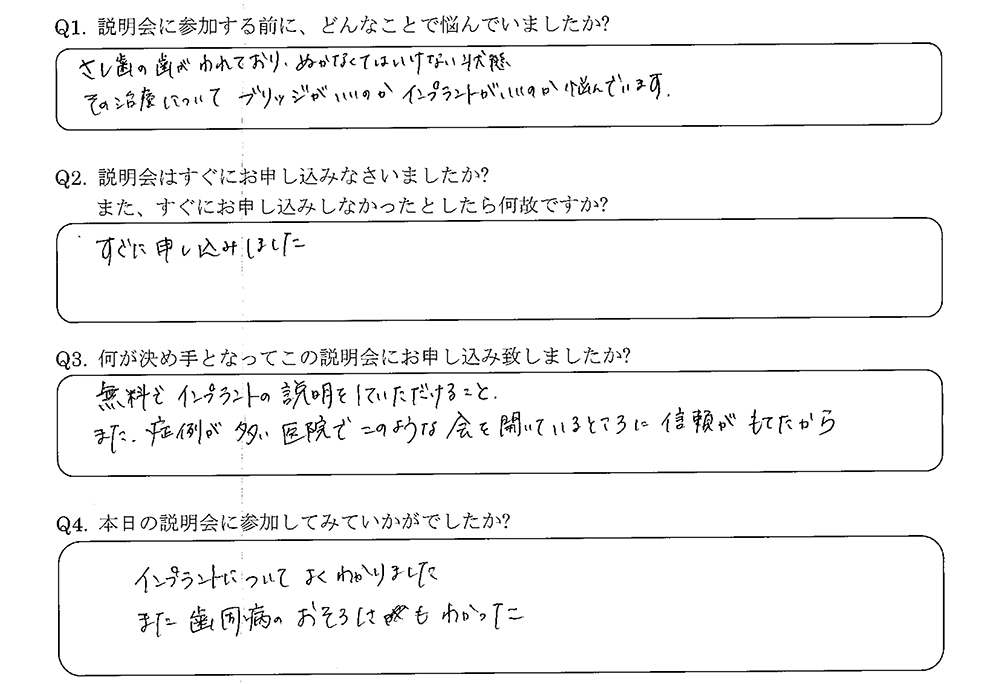 Q1. 説明会に参加する前に、どんなことで悩んでいましたか?
さし歯の歯がわれており、ぬかなくてはいけない状態
その治療について ブリッジがいいのか インプラントがいいのか 悩んでいます.
Q2. 説明会はすぐにお申し込みなさいましたか?
また、すぐにお申し込みしなかったとしたら何故ですか?
すぐに申し込みしました
Q3. 何が決め手となってこの説明会にお申し込み致しましたか?
無料でインプラントの説明をしていただけること.
また、症例が多い医院でこのような会を開いているところに信頼がもてたから
Q4. 本日の説明会に参加してみていかがでしたか?
インプラントについてよくわかりました
また歯周病のおそろしさもわかった